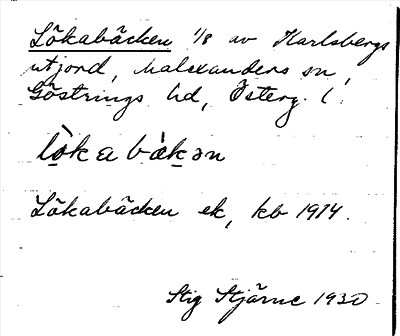 Lökabäcken 1/8 av Karlsbergs
utjord, Malexanders sn,
Göstrings hd, Österg. l.
lò̱k a bàk̠ən
Lökabäcken ek, kb 1914.
Stig Stjärne 1930